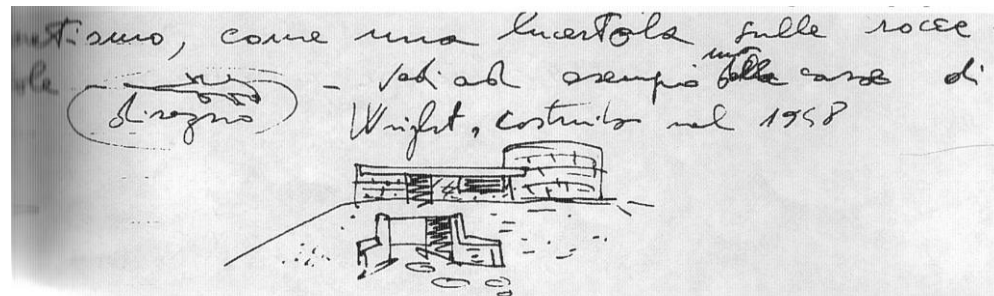 come una lucertola sulle rocce
disegno - vedi ad esempio casa di
Wright, costruita nel